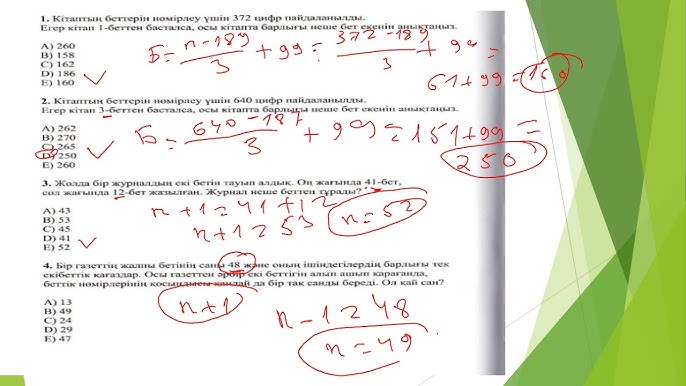 1. Кітаптың беттерін нөмірлеу үшін 372 цифр пайдаланылды.
Егер кітап 1-беттен басталса, осы кітапта барлығы неше бет екенін анықтаңыз.
A) 260
B) 158
C) 162
D) 186
E) 160
Б = n-189/3 + 99 = 372-189/3 + 99 =
61+99=160
2. Кітаптың беттерін нөмірлеу үшін 640 цифр пайдаланылды.
Егер кітап 3-беттен басталса, осы кітапта барлығы неше бет екенін анықтаңыз.
A) 262
B) 270
C) 265
D) 250
E) 260
Б = 640-187/3 + 99 = 151+99 =
250
3. Жолда бір журналдың екі бетін тауып алдық. Оң жағында 41-бет,
сол жағында 12-бет жазылған. Журнал неше беттен тұрады?
A) 43
B) 53
C) 45
D) 41
E) 52
n+1=41+12
n+1=53
n=52
4. Бір газеттің жалпы бетінің саны 48 және оның ішіндегілердің барлығы тек
екібеттік қағаздар. Осы газеттен әрбір екі беттігін алып ашып қарағанда,
беттік нөмірлерінің қосындысы қандай да бір тақ санды береді. Ол қай сан?
A) 13
B) 49
C) 24
D) 29
E) 47
n+1
n-1=48
n=49